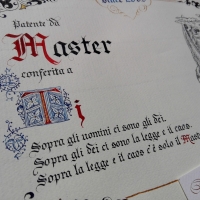 Patente da
Master
conferita a
Ti
Sopra gli uomini ci sono gli dei.
Sopra gli dei ci sono la legge e il caos.
Sopra la legge e il caos c'è solo il Mast